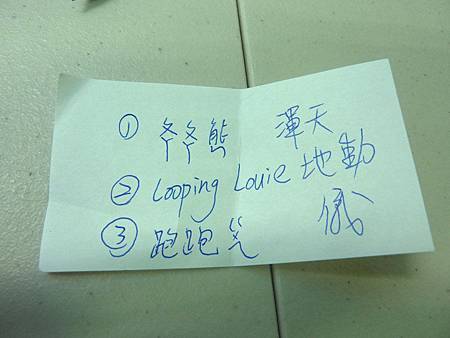 ① 熊
② Looping Louie
③ 跑跑
渾天
地動
儀